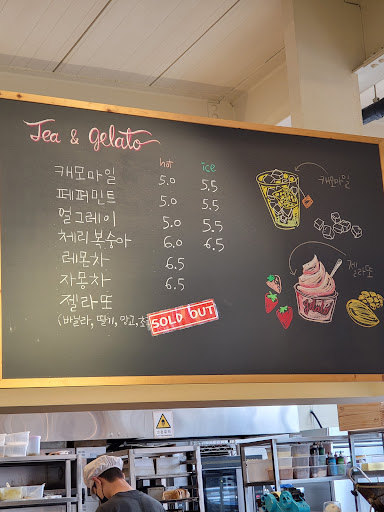 Tea & Gelato
hot ice
캐모마일 5.0 5.5
페퍼민트 5.0 5.5
얼그레이 5.0 5.5
체리복숭아 6.0 6.5
레몬차 6.5
자몽차 6.5
젤라또
(바닐라, 딸기, 망고, 초
SOLD OUT
캐모마일
젤라또